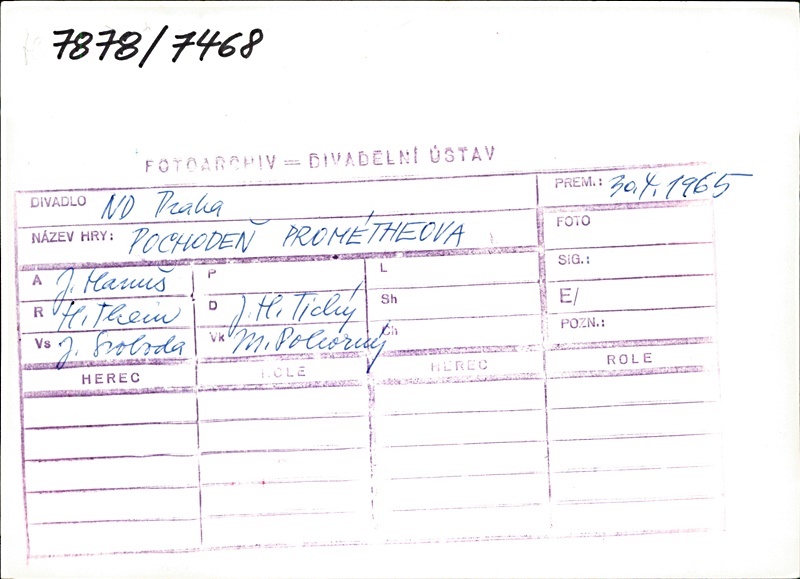 7878/7468
FOTOARCHIV = DIVADELNÍ ÚSTAV
DIVADLO ND Praha
PREM.: 30.4.1965
NÁZEV HRY: POCHODEŇ PROMÉTHEOVA
FOTO
A J. Hanuš P L
SIG.:
R H. Thein D J. H. Tichý Sh
E/
Vs J. Svoboda Vk M. Pokorný Ch
POZN.:
HEREC ROLE HEREC ROLE